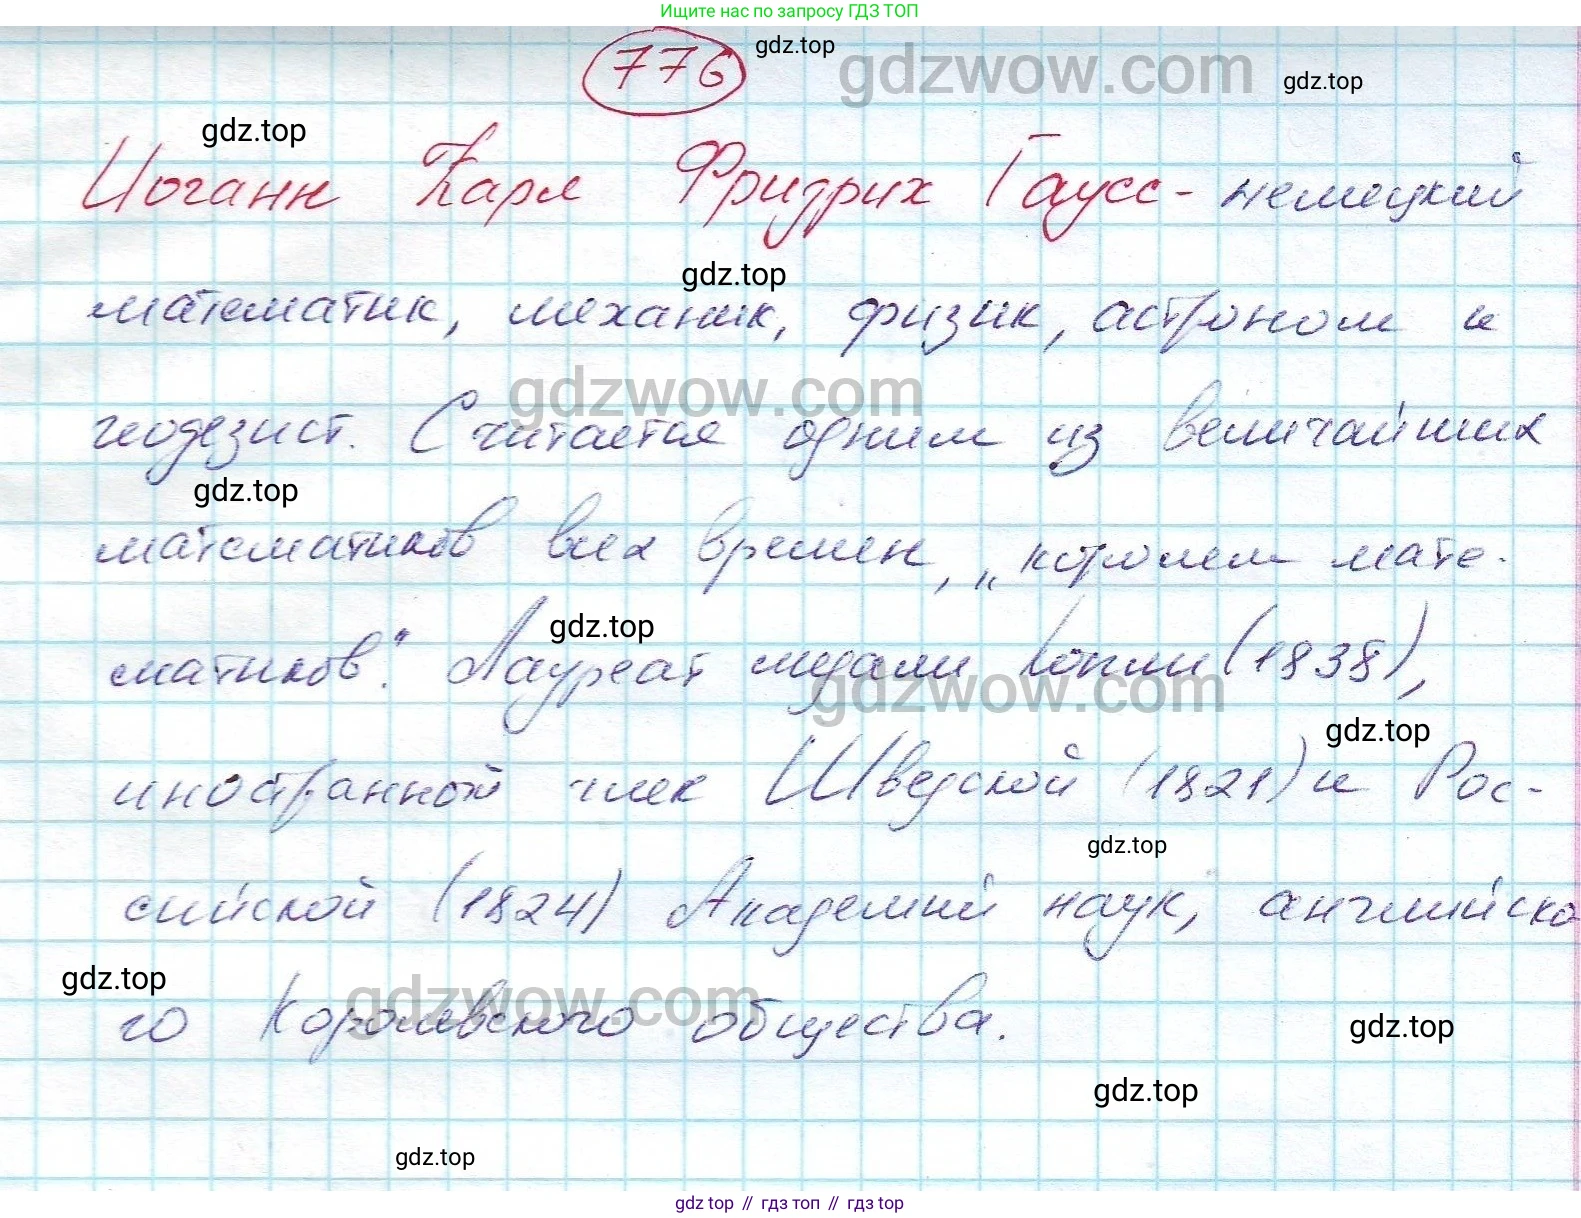 Ищите нас по запросу ГДЗ ТОП
776
gdz.top
gdzwow.com
gdz.top
gdz.top
Иоганн Карл Фридрих Гаусс - немецкий
gdz.top
математик, механик, физик, астроном и
gdzwow.com
геодезист. Считается одним из величайших
gdz.top
математиков всех времен, „королем мате-
gdz.top
матиков". Лауреат медали Копли (1838),
gdzwow.com
gdz.top
иностранный член Шведской (1821) и Рос-
gdz.top
сийской (1824) Академий наук, английско
gdz.top
gdzwow.com
го Королевского общества.
gdz.top
gdz.top
gdz.top
gdz top // гдз топ // гдз top